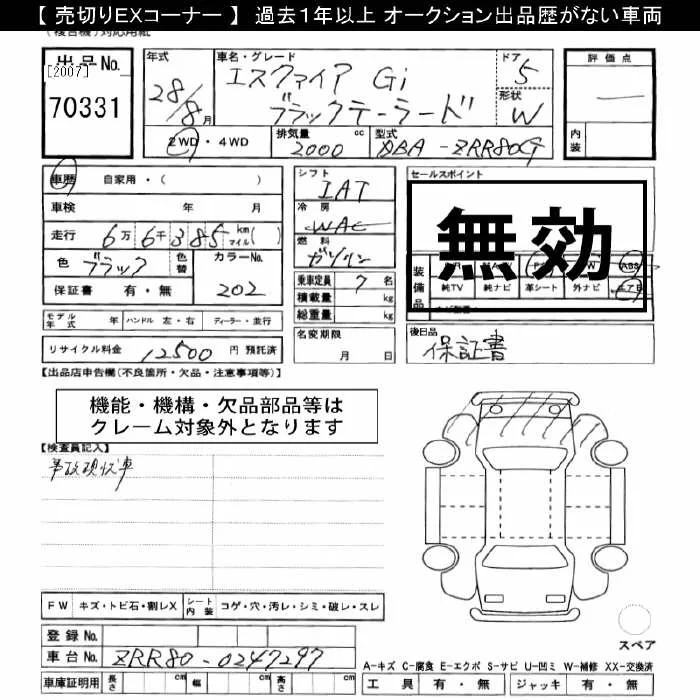 【 売切りEXコーナー 】 過去１年以上 オークション出品歴がない車両
(複合機) 対応用紙
出品No.
[2007]
70331
年式
28/8月
車名・グレード
エスクァイア Gi
ブラックテーラード
ドア
5
形状
W
2WD・4WD
排気量
2000 cc
型式
DBA-ZRR80G
評価点
内装
車歴 自家用・( )
車検 年 月
走行 6万6千385 km マイル( )
色 ブラック 色替
カラーNo.
202
保証書 有・無
シフト
IAT
冷房
WAC
燃料
ガソリン
乗車定員 7 名
積載量 kg
総重量 kg
セールスポイント
無効
装備品
ABS
純TV 純ナビ 革シート 外ナビ エアB
モデル年式 年 ハンドル 左・右 ディーラー・並行
リサイクル料金 12500 円 預託済
名変期限
月 日
後日品
保証書
【出品店申告欄(不良箇所・欠品・注意事項等)】
機能・機構・欠品部品等は
クレーム対象外となります
【検査員記入】
事故現状車
FW キズ・トビ石・割レX シート内装 コゲ・穴・汚レ・シミ・破レ・スレ
登録No.
車台No. ZRR80-0247297
車庫証明用 長さ cm 幅 cm 高さ cm
スペア
A-キズ C-腐食 E-エクボ S-サビ U-凹ミ W-補修 XX-交換済
工具 有・無 ジャッキ 有・無